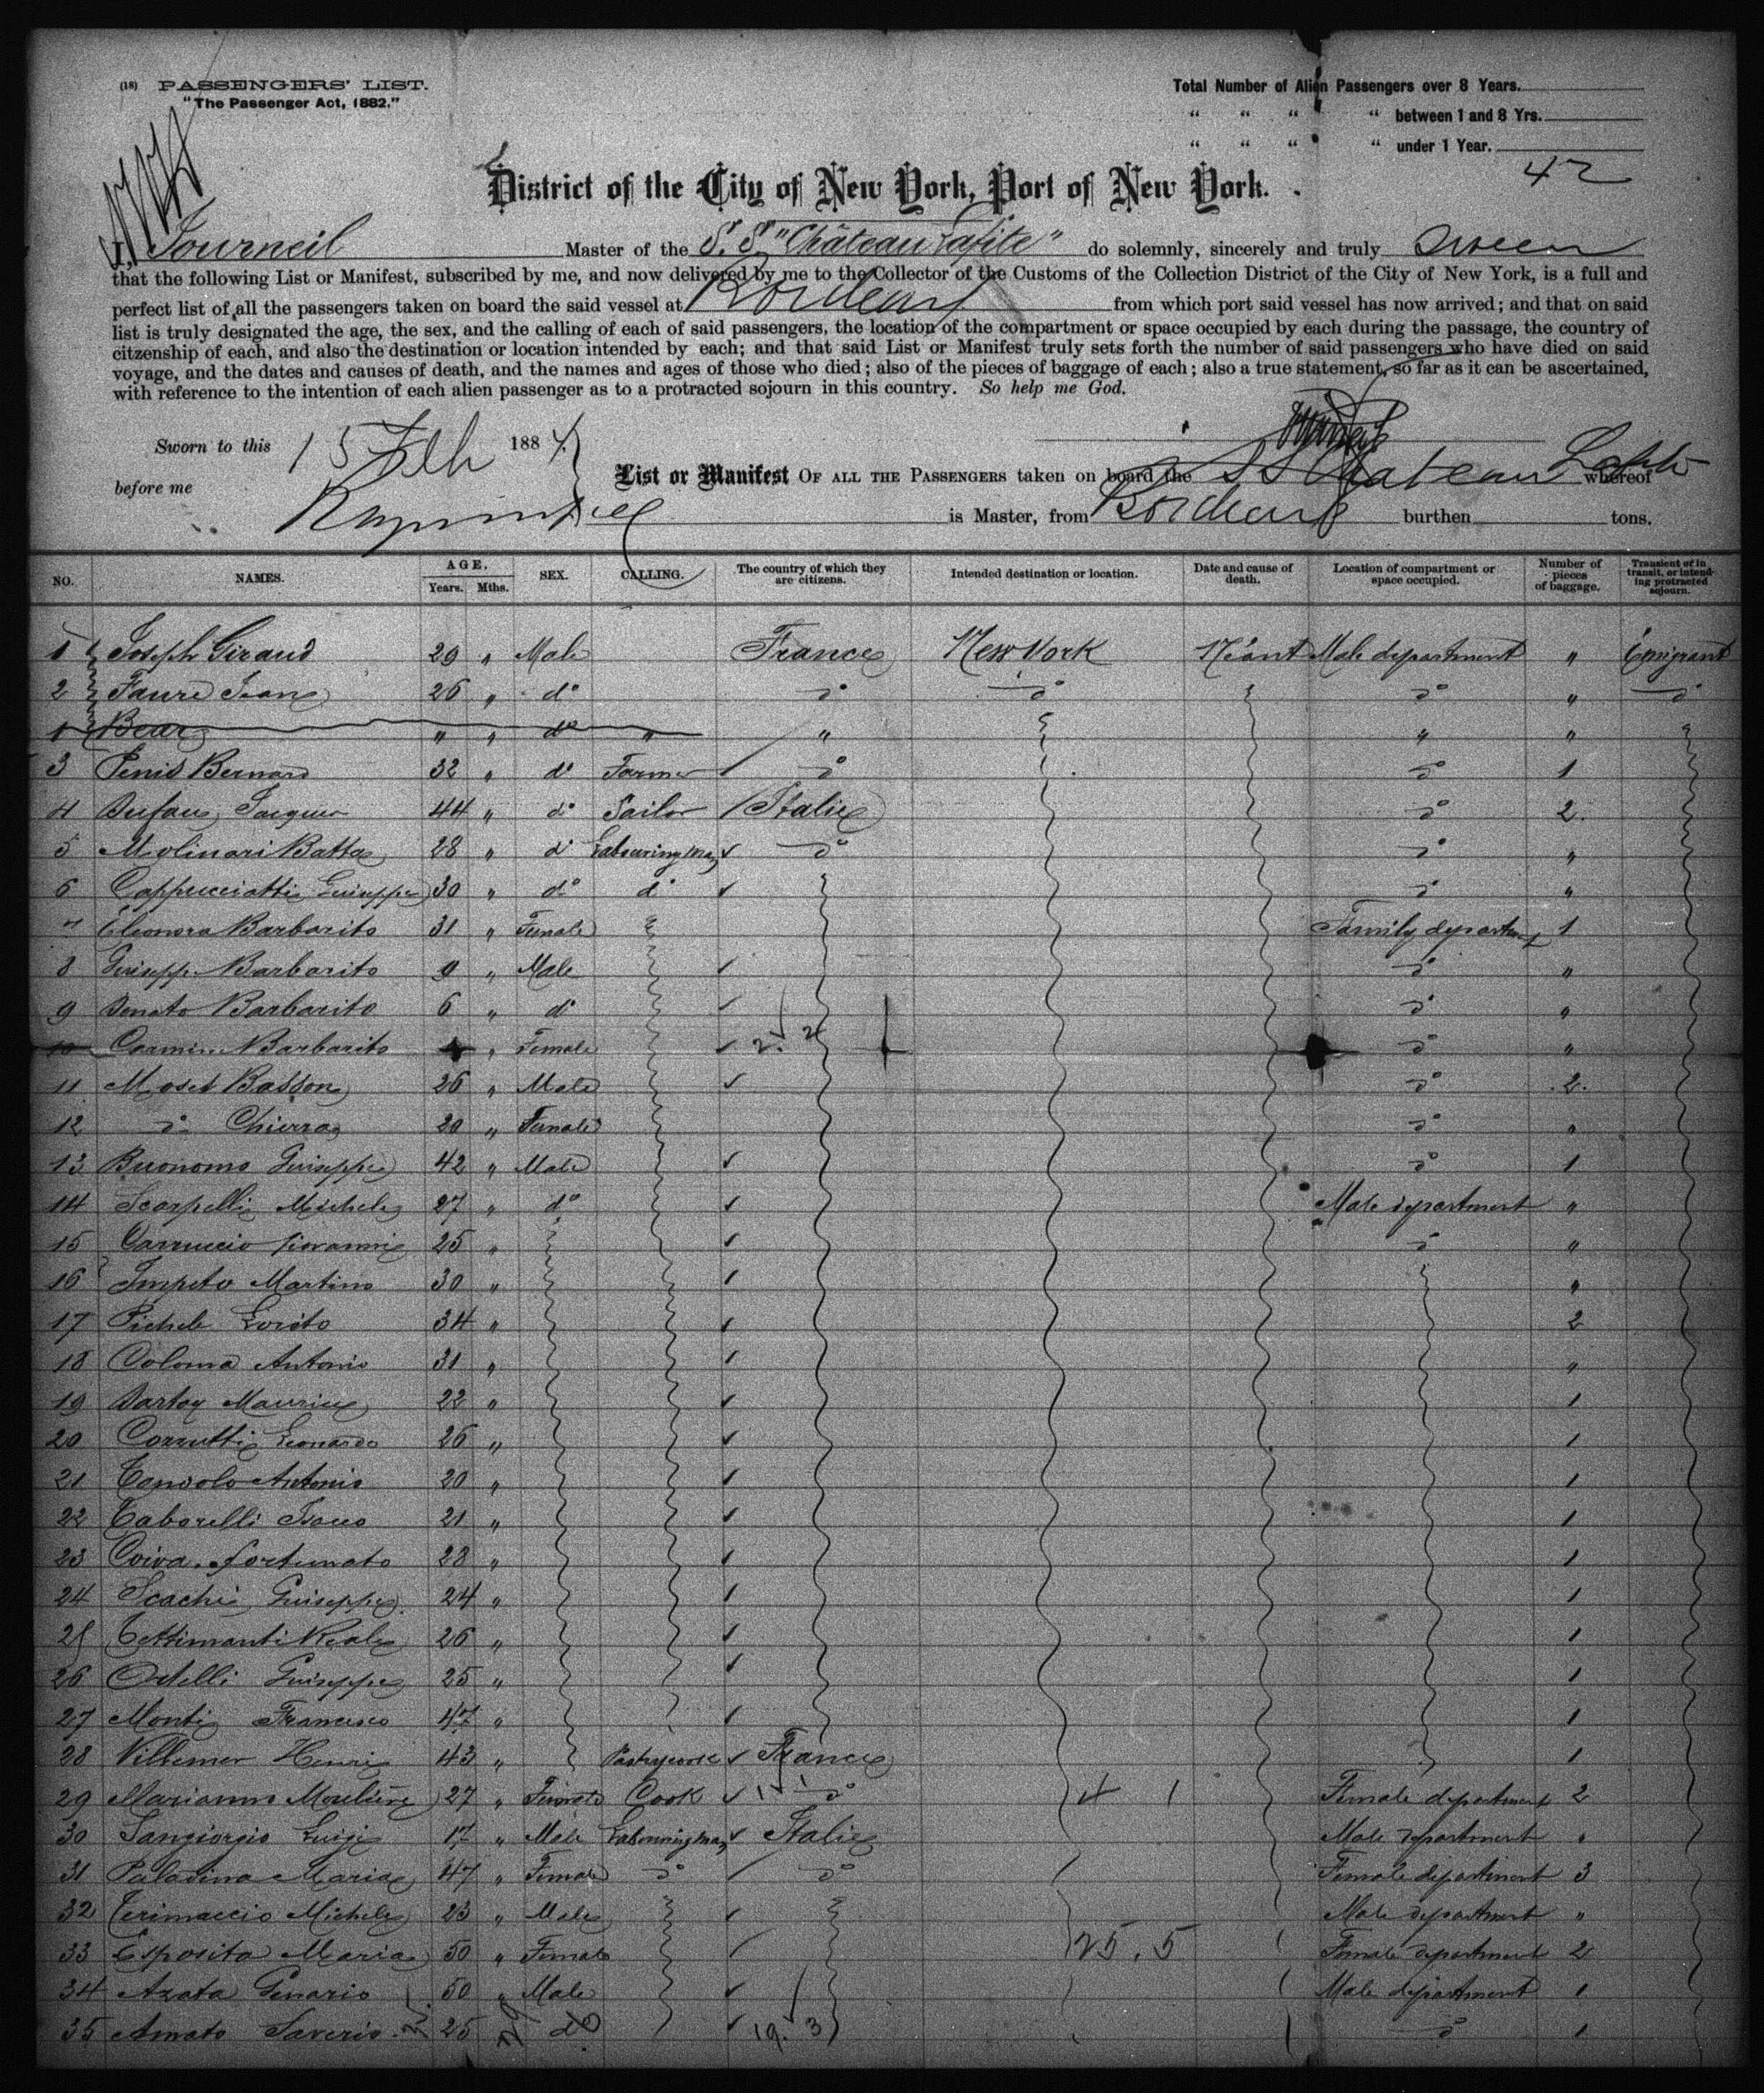 (18) PASSENGERS' LIST.
"The Passenger Act, 1882."
Total Number of Alien Passengers over 8 Years.
“ “ “ “ between 1 and 8 Yrs.
“ “ “ “ under 1 Year.
42
District of the City of New York, Port of New York.
I, Journeil Master of the S. S. "Château Lafite" do solemnly, sincerely and truly swear
that the following List or Manifest, subscribed by me, and now delivered by me to the Collector of the Customs of the Collection District of the City of New York, is a full and
perfect list of all the passengers taken on board the said vessel at Bordeaux from which port said vessel has now arrived; and that on said
list is truly designated the age, the sex, and the calling of each of said passengers, the location of the compartment or space occupied by each during the passage, the country of
citzenship of each, and also the destination or location intended by each; and that said List or Manifest truly sets forth the number of said passengers who have died on said
voyage, and the dates and causes of death, and the names and ages of those who died; also of the pieces of baggage of each; also a true statement, so far as it can be ascertained,
with reference to the intention of each alien passenger as to a protracted sojourn in this country. So help me God.
Sworn to this 15 Feb 1884
before me
List or Manifest OF ALL THE PASSENGERS taken on board the S S Chateau Lafite whereof
is Master, from Bordeaux burthen tons.
NO. NAMES. AGE. Years. Mths. SEX. CALLING. The country of which they are citizens. Intended destination or location. Date and cause of death. Location of compartment or space occupied. Number of pieces of baggage. Transient or in transit, or intending protracted sojourn.
1 Joseph Giraud 29 " Male France New York Néant Male department " Emigrant
2 Faure Jean 26 " do do do do " do
1 Bear " " do " " " "
3 Penis Bernard 32 " do Farmer do do 1
4 Dufau Jacques 44 " do Sailor Italie do 2
5 Molinari Batta 28 " do Labouring man do do "
6 Cappucciatti Guiseppe 30 " do do do "
7 Eleonora Barbarito 31 " Female Family department 1
8 Guiseppe Barbarito 9 " Male do "
9 Donato Barbarito 6 " do do "
10 Carmine Barbarito " Female 2. 2 do "
11 Moset Basson 26 " Male do 2
12 do Chierra 20 " Female do "
13 Buonomo Guiseppe 42 " Male do 1
14 Scarpelli Michele 27 " do Male department "
15 Carruccio Giovanni 25 " do "
16 Impeto Martino 30 " "
17 Pichele Loreto 34 " 2
18 Coloma Antonio 31 " "
19 Dartoy Maurice 22 " 1
20 Corrutti Leonardo 26 " 1
21 Cansolo Antonio 20 " 1
22 Taborelli Isacco 21 " 1
23 Coiva Fortunato 28 " 1
24 Scachi Guiseppe 24 " 1
25 Tettimanti Reale 26 " 1
26 Ortelli Guiseppe 25 " 1
27 Monti Francesco 47 " 1
28 Villemer Henri 43 " Pastrycook France 1
29 Marianne Moulière 27 " Female Cook 1 1 do 4 1 Female department 2
30 Sangiorgio Luigi 17 " Male Labouring man Italie Male department "
31 Paladina Maria 47 " Female do do Female department 3
32 Terimaccio Michele 23 " Male Male department "
33 Esposito Maria 50 " Female 25. 5 Female department 2
34 Azata Genario 50 " Male Male department 1
35 Amato Saverio 25 do 19. 3 do 1